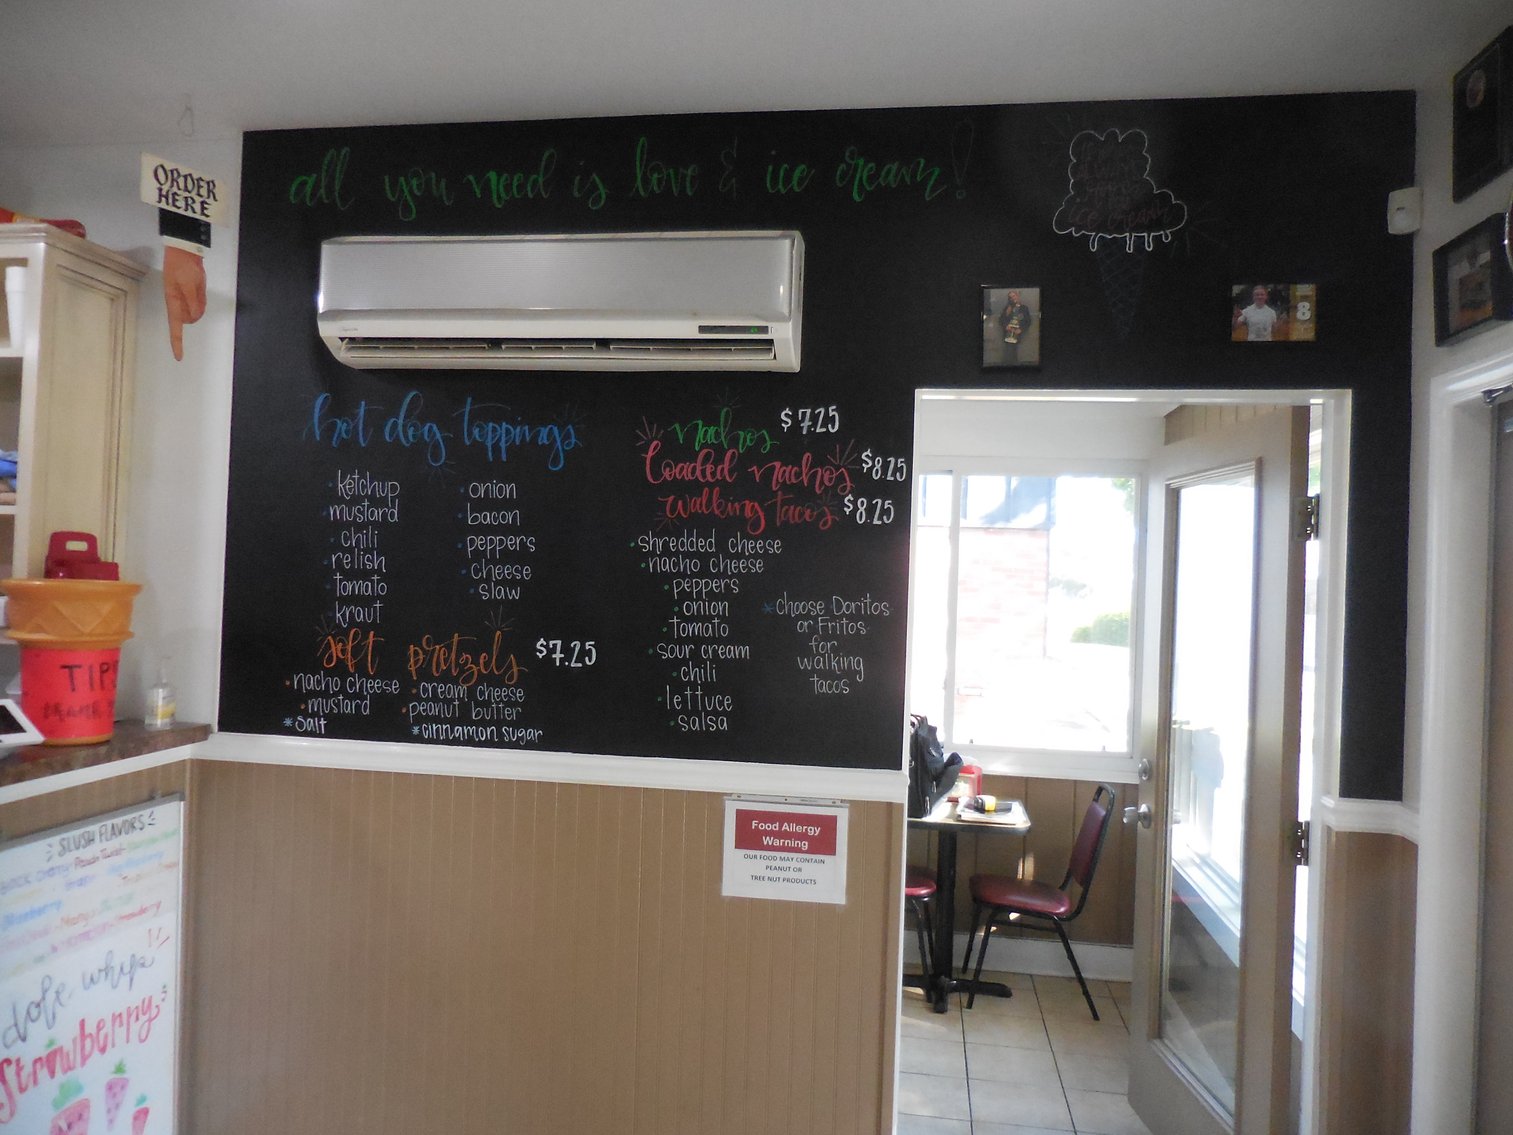 all you need is love & ice cream!
ORDER
HERE
ice cream
8
hot dog toppings
ketchup
mustard
chili
relish
tomato
kraut
onion
bacon
peppers
cheese
slaw
soft pretzels $7.25
nacho cheese
mustard
*salt
cream cheese
peanut butter
*cinnamon sugar
nachos $7.25
loaded nachos $8.25
walking tacos $8.25
shredded cheese
nacho cheese
peppers
onion
tomato
sour cream
chili
lettuce
salsa
*choose Doritos
or Fritos
for
walking
tacos
TIPS
Food Allergy
Warning
OUR FOOD MAY CONTAIN
PEANUT OR
TREE NUT PRODUCTS
SLUSH FLAVORS
Blueberry
Mango
Strawberry
dole whip
Strawberry